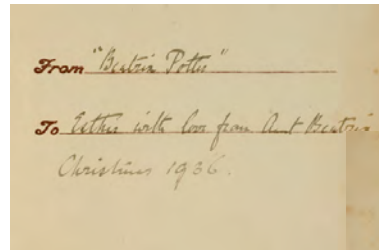 From "Beatrix Potter"
To Esther with love from Aunt Beatrix
Christmas 1936.